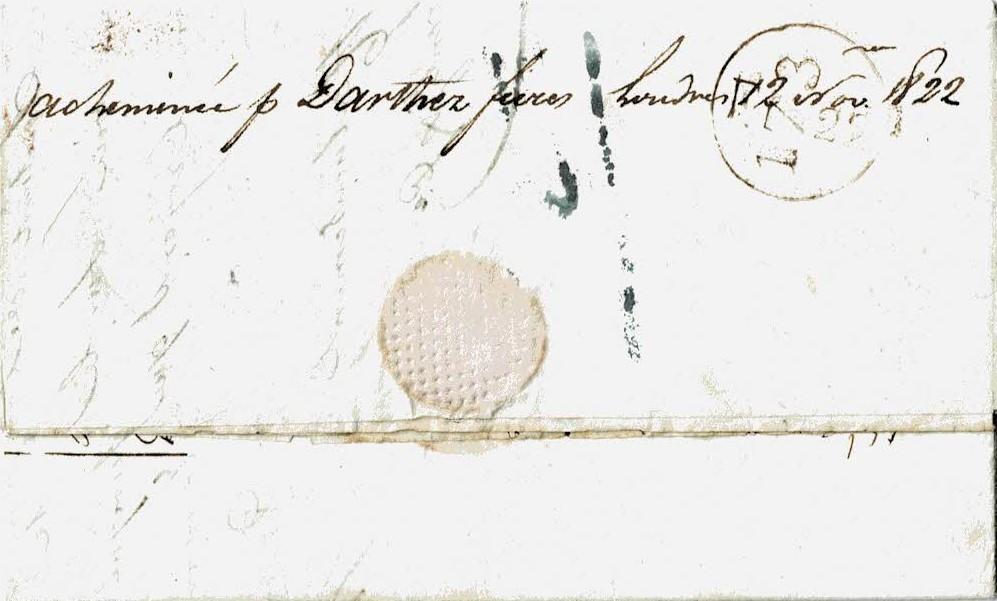 acheminée p Darthez freres Londres 12 Nov.re 1822